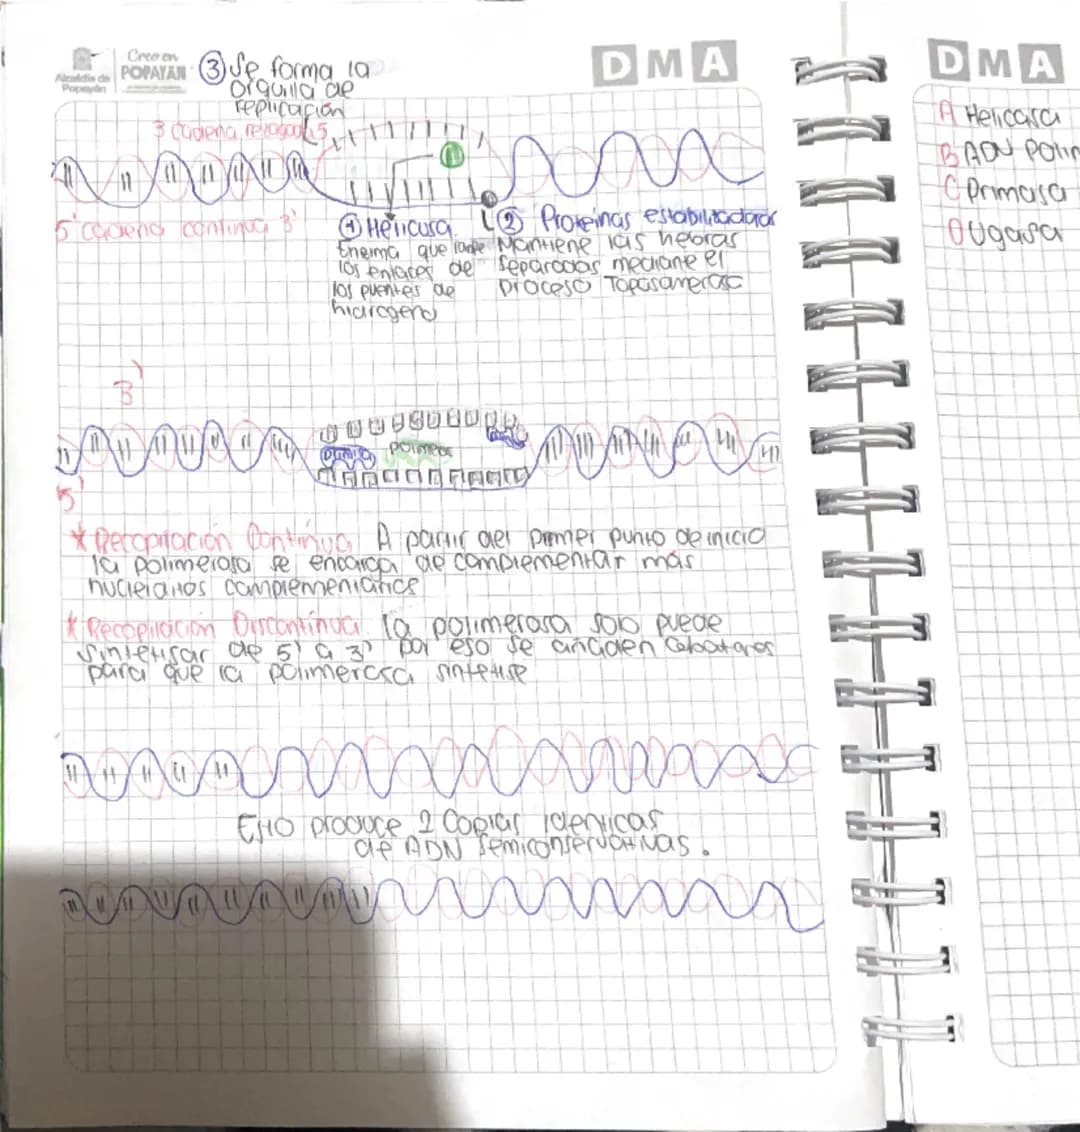 Alcaldía de
Popayán
Creo en
POPAYÁN
DMA
③ Se forma la
orquilla de
replicación
3 cadena rezagada 5
1
5' cadena continua 3'
① Helicasa
Enzima que rompe
los enlaces de
los puentes de
hidrogeno
② Proteinas estabilizadoras
Mantiene las hebras
separadas mediante el
proceso Topasomerasa
3'
polimera
5'
* Recopilación Continua A partir del primer punto de inicio
la polimerasa se encarga de complementar más
complementarios
* Recopilación Discontinua la polimerasa solo puede
sintetisar de 5' a 3' por eso se añaden
para que la polimerasa sintetise
Esto produce 2 Copias identicas
de ADN semiconservativas.
DMA
A Helicasa
B ADN Polim
C Primasa
D Ligasa